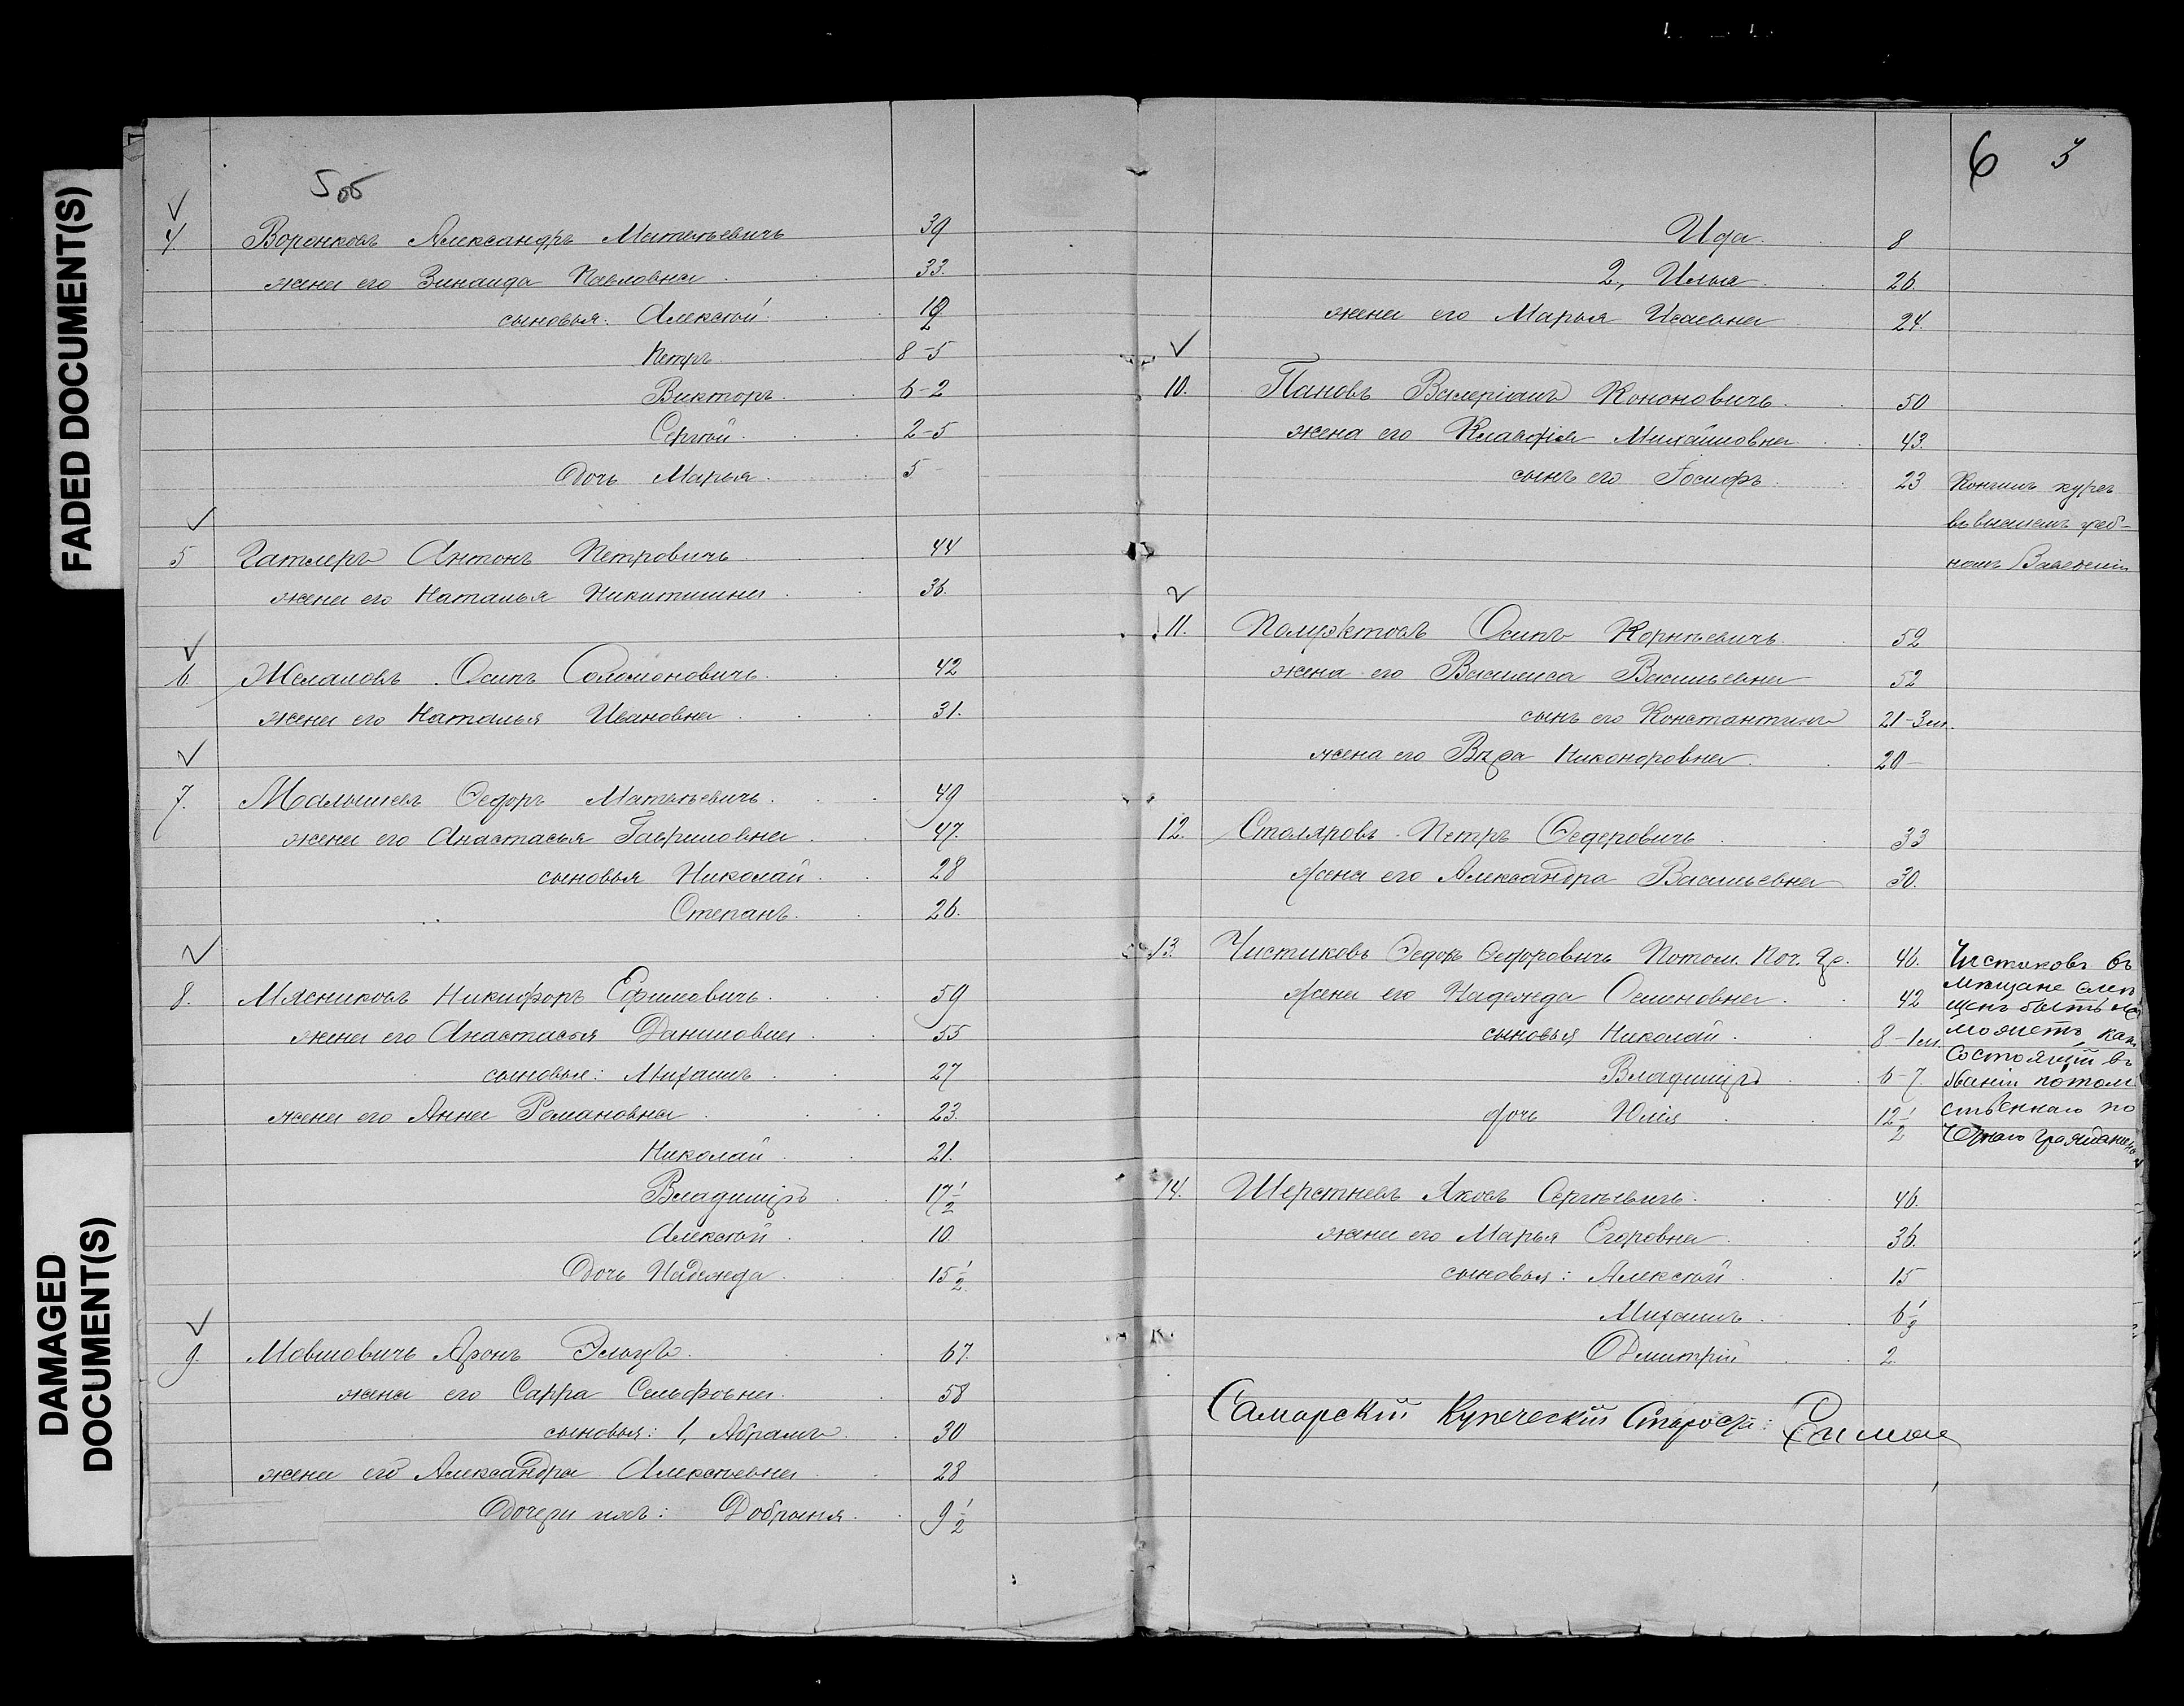 FADED DOCUMENT(S)
DAMAGED
DOCUMENT(S)
5об
4. Воронковъ Александръ Матвѣевичъ 39
жена его Зинаида Павловна 33.
сыновья: Алексѣй
Петръ 8-5
Викторъ 6-2
Сергѣй 2-5
Дочь Марья 5-
5 Гатлеръ Антонъ Петровичъ 44
жена его Наталья Никитишна 36.
6. Желановъ Осипъ Соломоновичъ 42
жена его Наталья Ивановна 31.
7. Малышевъ Федоръ Матвѣевичъ 49
жена его Анастасья Гавриловна 47.
сыновья Николай 28
Степанъ 26.
8. Мясниковъ Никифоръ Ефимовичъ 59
жена его Анастасья Даниловна 55
сыновья: Михаилъ 27
жена его Анна Романовна 23.
Николай 21.
Владиміръ 17 1/2
Алексѣй 10.
Дочь Надежда 15 1/2
9. Мовшовичъ Аронъ 67.
жена его Сарра 58
сыновья: 1, Абрамъ 30
жена его Александра Алексѣевна 28
Дочери ихъ: Добрыня 9 1/2
6 3
Ида 8
2, Илья 26.
жена его Марья Исаевна 24.
10. Пановъ Валеріанъ Кононовичъ 50
жена его Клавдія Михайловна 43.
сынъ его Іосифъ 23 Кончилъ курсъ
въ высшемъ учеб-
номъ Заведеніи
11. Полуэктовъ Осипъ Корнѣевичъ 52
жена его Василиса Васильевна 52
сынъ его Константинъ 21-3 м.
жена его Вѣра Никоноровна 20-
12. Столяровъ Петръ Федеровичъ 33
жена его Александра Васильевна 30.
13. Чистиковъ Федоръ Федоровичъ Потом. Поч. Гр. 46. Чистиковъ въ
жена его Надежда Семеновна 42 мѣщане
щенъ быть не
сыновья Николай 8-1 м. можетъ, какъ
состоящій въ
Владиміръ 6-7. званіи потом
дочь Юлія 12 1/2 ственнаго по
четнаго гражданина
14. Шерстневъ Яковъ Сергѣевичъ 46.
жена его Марья Егоровна 36.
сыновья: Алексѣй 15
Михаилъ
Дмитрій 2.
Самарскій Купеческій Староста: